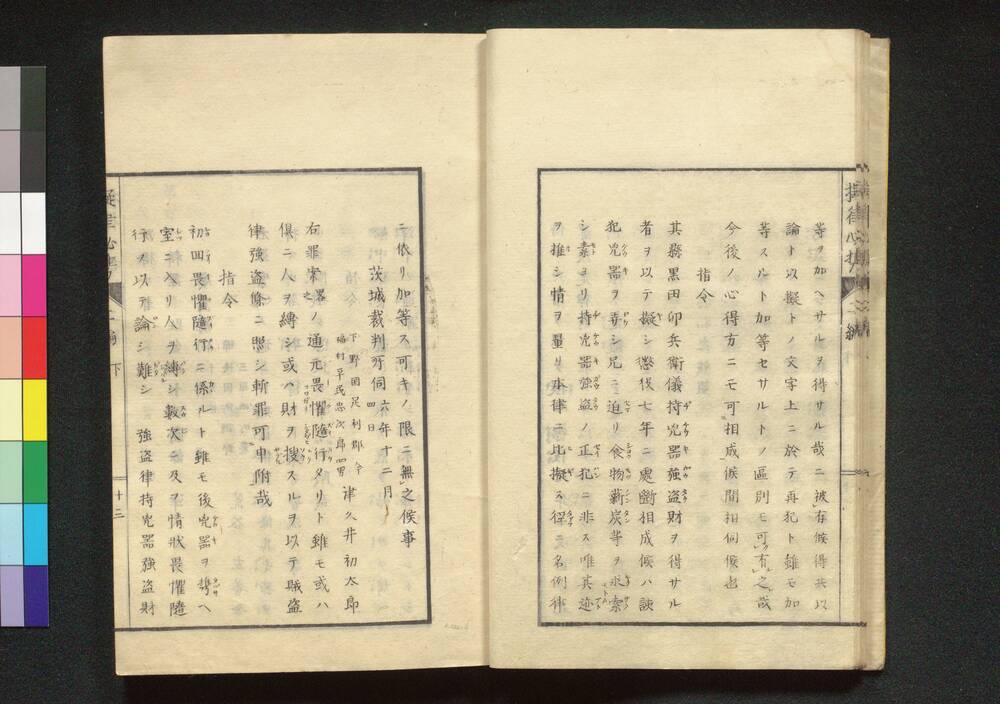 擬律必携 二編
等ヲ加ヘサルヲ得サル哉ニ被存候得共以
論ト以擬トノ文字上ニ於テ再犯ト雖モ加
等スルト加等セサルトノ區別モ可有之哉
今後ノ心得方ニモ可相成候間相伺候也
指令
其縣黒田卯兵衛儀持兇器強盗財ヲ得サル
者ヲ以テ擬シ懲役七年ニ處斷相成候ハ該
犯兇器ヲ弄シ兄ニ迫リ食物薪炭等ヲ求索
シ素ヨリ持兇器強盗ノ正犯ニ非ス唯其迹
ヲ推シ情ヲ量リ本律ニ比擬ス得ニ名例律
ニ依リ加等ス可キノ限ニ無之候事
茨城裁判所伺 六年十二月四日
下野國足利郡今
福村平民忠次郎四男 津久井初太郎
右罪案畧之ノ通元畏懼隨行タリト雖モ或ハ
倶ニ人ヲ縛シ或ハ財ヲ搜スルヲ以テ賊盗
律強盗條ニ照シ斬罪可申附哉
指令
初回畏懼隨行ニ係ルト雖モ後兇器ヲ携ヘ
室ニ入リ人ヲ縛シ數次ニ及フ情状畏懼隨
行ヲ以テ論シ難シ 強盗律持兇器強盗財
擬律必携 二編 下 十三